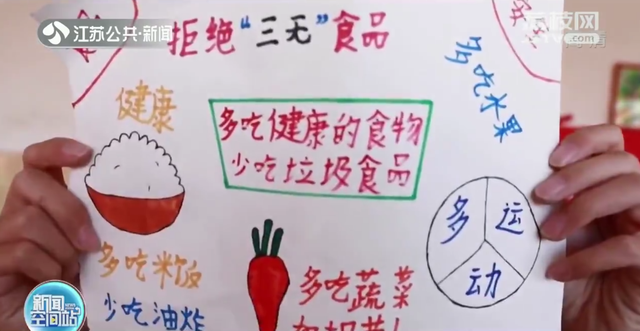 江苏公共·新闻
荔枝网
拒绝“三无”食品
健康
多吃水果
多吃健康的食物
少吃垃圾食品
多运动
多吃米饭
少吃油炸
多吃蔬菜
新闻
空间站